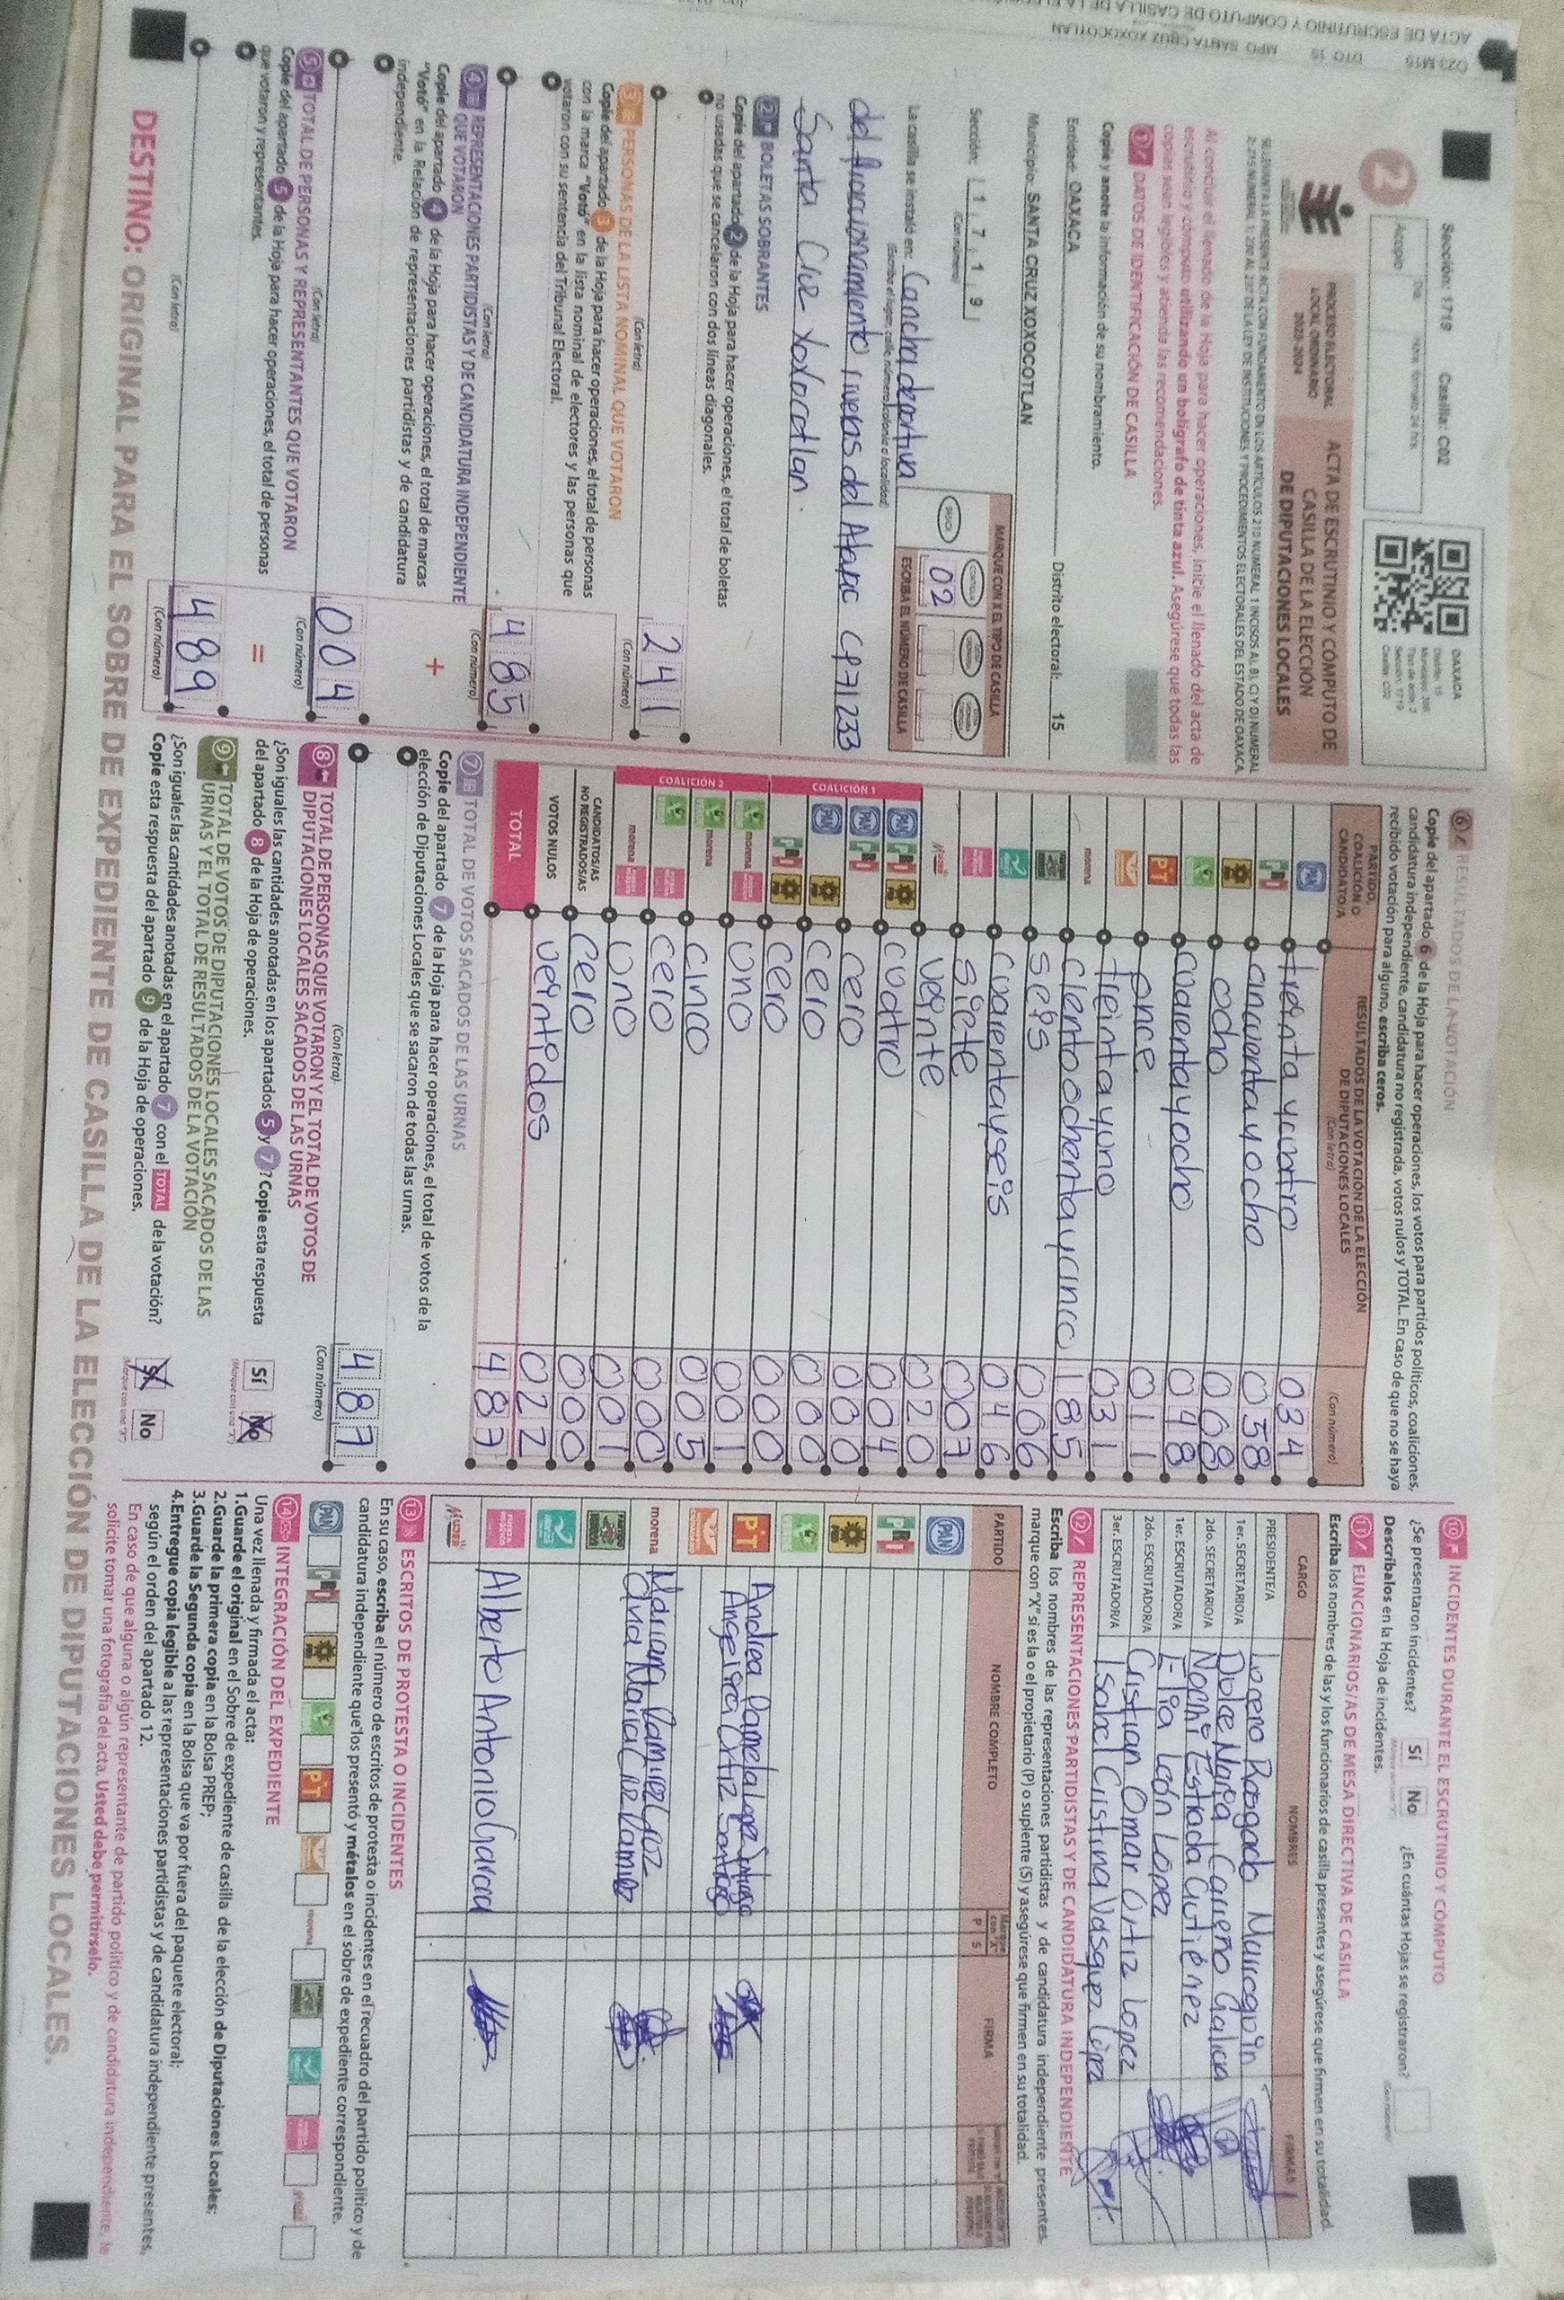 ACTA DE ESCRUTINIO Y CÓMPUTO DE CASILLA DE LA
DTO 15 MPO SANTA CRUZ XOXOCOTLAN
Sección: 1719 Casilla: C02
2
Acopio
OAXACA
Distrito: 15
Sección: 1719
Casilla: C02
PROCESO ELECTORAL
LOCAL ORDINARIO
2023-2024
ACTA DE ESCRUTINIO Y CÓMPUTO DE
CASILLA DE LA ELECCIÓN
DE DIPUTACIONES LOCALES
Al concluir el llenado de la Hoja para hacer operaciones, inicie el llenado del acta de
escrutinio y cómputo utilizando un bolígrafo de tinta azul. Asegúrese que todas las
copias sean legibles y atienda las recomendaciones.
1 DATOS DE IDENTIFICACIÓN DE CASILLA
Copie y anote la información de su nombramiento.
Entidad: OAXACA Distrito electoral: 15
Municipio: SANTA CRUZ XOXOCOTLAN
Sección: 1719
(Con número)
MARQUE CON X EL TIPO DE CASILLA
02
ESCRIBA EL NÚMERO DE CASILLA
La casilla se instaló en: Cancha deportiva
(Escriba el lugar, calle, número, colonia o localidad)
del fraccionamiento riveras del Atoyac CP 71233
Santa Cruz Xoxocotlan.
2 BOLETAS SOBRANTES
Copie del apartado 2 de la Hoja para hacer operaciones, el total de boletas
no usadas que se cancelaron con dos líneas diagonales.
241
(Con letra) (Con número)
3 PERSONAS DE LA LISTA NOMINAL QUE VOTARON
Copie del apartado 3 de la Hoja para hacer operaciones, el total de personas
con la marca "Votó" en la lista nominal de electores y las personas que
votaron con su sentencia del Tribunal Electoral.
485
(Con letra) (Con número)
4 REPRESENTACIONES PARTIDISTAS Y DE CANDIDATURA INDEPENDIENTE
QUE VOTARON
+
Copie del apartado 4 de la Hoja para hacer operaciones, el total de marcas
"Votó" en la Relación de representaciones partidistas y de candidatura
independiente.
004
(Con letra) (Con número)
5 TOTAL DE PERSONAS Y REPRESENTANTES QUE VOTARON
=
Copie del apartado 5 de la Hoja para hacer operaciones, el total de personas
que votaron y representantes.
489
(Con letra) (Con número)
6 RESULTADOS DE LA VOTACIÓN
Copie del apartado 6 de la Hoja para hacer operaciones, los votos para partidos políticos, coaliciones,
candidatura independiente, candidatura no registrada, votos nulos y TOTAL. En caso de que no se haya
recibido votación para alguno, escriba ceros.
PARTIDO,
COALICIÓN O
CANDIDATO/A
RESULTADOS DE LA VOTACIÓN DE LA ELECCIÓN
DE DIPUTACIONES LOCALES
(Con letra) (Con número)
PAN treinta y cuatro 034
PRI cincuenta y ocho 058
ocho 008
cuarenta y ocho 048
PT once 011
treinta y uno 031
morena ciento ochenta y cinco 185
seis 006
cuarenta y seis 046
siete 007
Mujer veinte 020
COALICIÓN 1
PAN PRI cuatro 004
PAN PRI cero 000
PAN cero 000
PRI cero 000
COALICIÓN 2
morena uno 001
morena cinco 005
cero 000
morena uno 001
CANDIDATOS/AS
NO REGISTRADOS/AS cero 000
VOTOS NULOS veintidos 022
TOTAL 487
7 TOTAL DE VOTOS SACADOS DE LAS URNAS
Copie del apartado 7 de la Hoja para hacer operaciones, el total de votos de la
elección de Diputaciones Locales que se sacaron de todas las urnas.
487
(Con letra) (Con número)
8 TOTAL DE PERSONAS QUE VOTARON Y EL TOTAL DE VOTOS DE
DIPUTACIONES LOCALES SACADOS DE LAS URNAS
¿Son iguales las cantidades anotadas en los apartados 5 y 7? Copie esta respuesta
del apartado 8 de la Hoja de operaciones.
Sí No
9 TOTAL DE VOTOS DE DIPUTACIONES LOCALES SACADOS DE LAS
URNAS Y EL TOTAL DE RESULTADOS DE LA VOTACIÓN
¿Son iguales las cantidades anotadas en el apartado 7 con el TOTAL de la votación?
Copie esta respuesta del apartado 9 de la Hoja de operaciones.
Sí No
10 INCIDENTES DURANTE EL ESCRUTINIO Y CÓMPUTO
¿Se presentaron incidentes? Sí No ¿En cuántas Hojas se registraron?
Descríbalos en la Hoja de incidentes.
11 FUNCIONARIOS/AS DE MESA DIRECTIVA DE CASILLA
Escriba los nombres de las y los funcionarios de casilla presentes y asegúrese que firmen en su totalidad.
CARGO NOMBRES FIRMAS
PRESIDENTE/A
1er. SECRETARIO/A Dulce María Carreño Galicia
2do. SECRETARIO/A Estrada Gutiérrez
1er. ESCRUTADOR/A Elia León López
2do. ESCRUTADOR/A Cristian Omar Ortiz López
3er. ESCRUTADOR/A Isabel Cristina Vasquez López
12 REPRESENTACIONES PARTIDISTAS Y DE CANDIDATURA INDEPENDIENTE
Escriba los nombres de las representaciones partidistas y de candidatura independiente presentes,
marque con "X" si es la o el propietario (P) o suplente (S) y asegúrese que firmen en su totalidad.
PARTIDO NOMBRE COMPLETO P S FIRMA
PAN
PRI
PT Andrea Pamela Lopez
Ortiz Santiago
morena Mariana Ramirez Cruz
Ana Maria Cruz Ramirez
Alberto Antonio Garcia
Mujer
13 ESCRITOS DE PROTESTA O INCIDENTES
En su caso, escriba el número de escritos de protesta o incidentes en el recuadro del partido político y de
candidatura independiente que los presentó y métalos en el sobre de expediente correspondiente.
PAN PRI PT morena
14 INTEGRACIÓN DEL EXPEDIENTE
Una vez llenada y firmada el acta:
1.Guarde el original en el Sobre de expediente de casilla de la elección de Diputaciones Locales;
2.Guarde la primera copia en la Bolsa PREP;
3.Guarde la Segunda copia en la Bolsa que va por fuera del paquete electoral;
4.Entregue copia legible a las representaciones partidistas y de candidatura independiente presentes,
según el orden del apartado 12.
En caso de que alguna o algún representante de partido político y de candidatura independiente, le
solicite tomar una fotografía del acta, Usted debe permitírselo.
DESTINO: ORIGINAL PARA EL SOBRE DE EXPEDIENTE DE CASILLA DE LA ELECCIÓN DE DIPUTACIONES LOCALES.